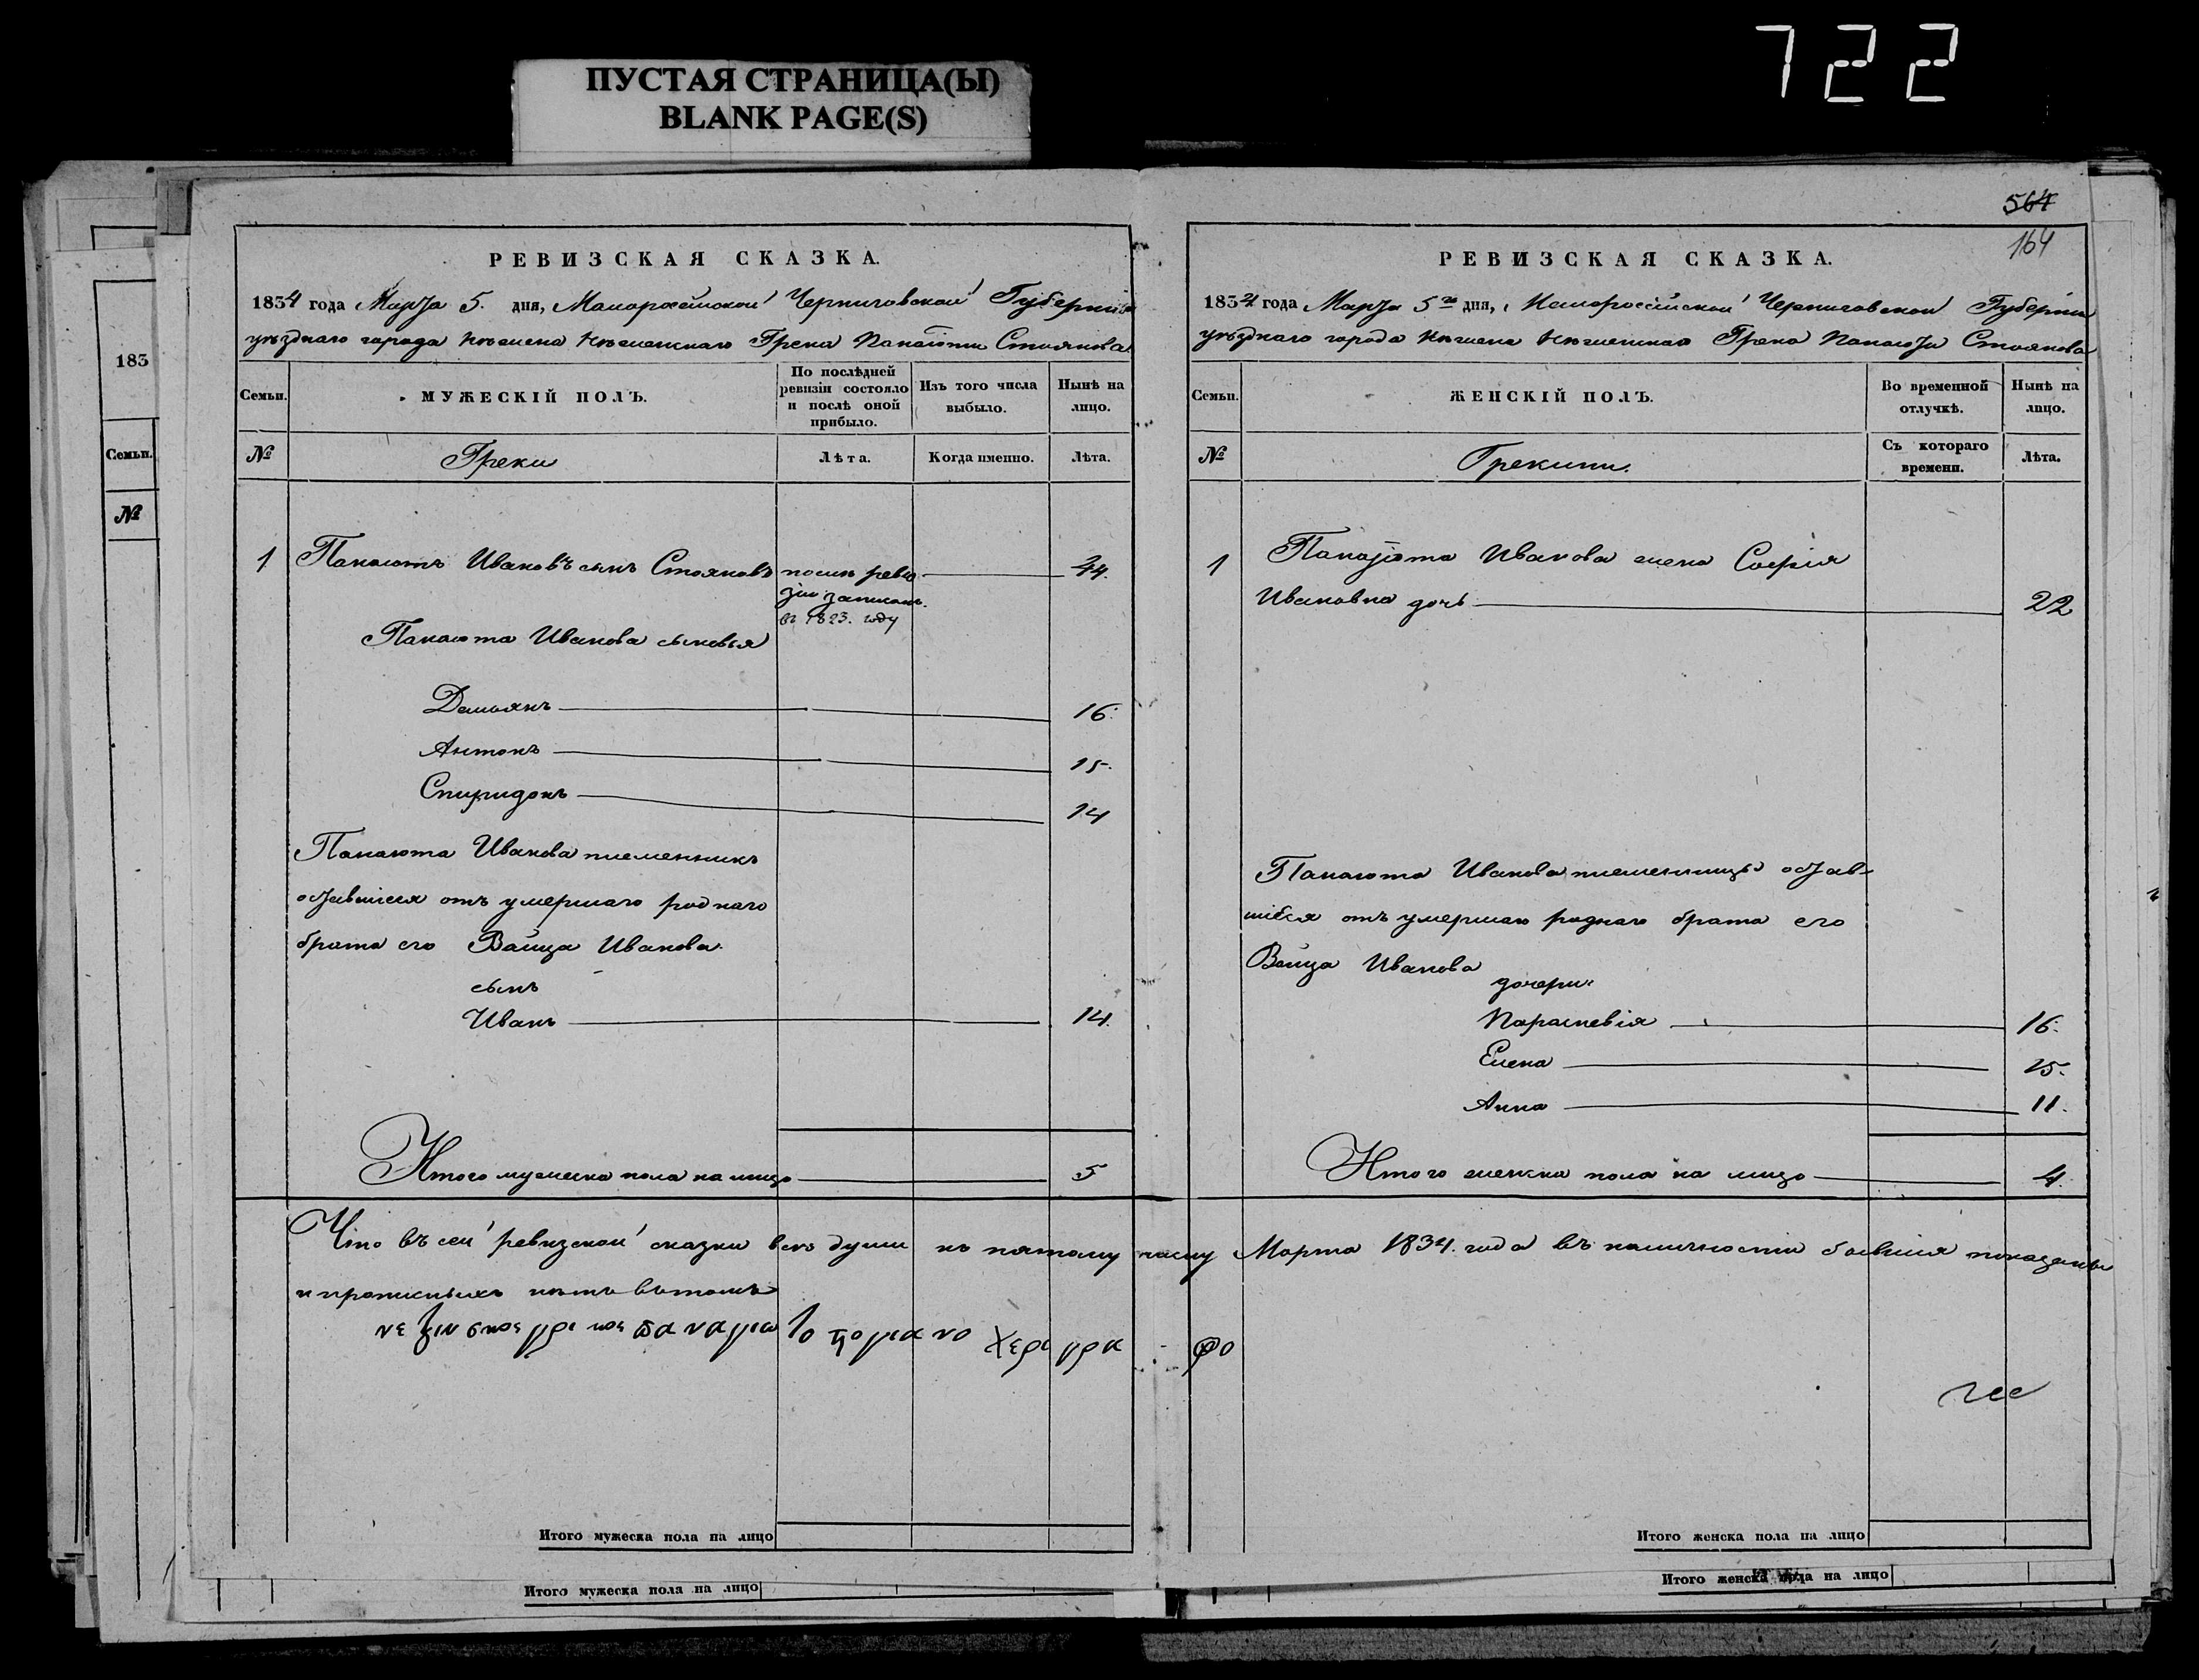 722
ПУСТАЯ СТРАНИЦА(Ы)
BLANK PAGE(S)
183
Семьи.
№
РЕВИЗСКАЯ СКАЗКА.
1834 года Марта 5. дня, Малороссійской Черниговской Губерніи
уѣзднаго города Нѣжина Нѣжинскаго Грека Панаіоти Стоянова
Семьи.
МУЖЕСКІЙ ПОЛЪ.
По послѣдней ревизіи состояло и послѣ оной прибыло.
Изъ того числа выбыло.
Нынѣ на лицо.
№
Греки
Лѣта.
Когда именно.
Лѣта.
1 Панаіотъ Ивановъ сынъ Стояновъ послѣ реви 44.
зіи записанъ
въ 1823. году
Панаіота Иванова сыновья
Демьянъ 16.
Антонъ 15.
Спиридонъ 14
Панаіота Иванова племенникъ
оставшіеся отъ умершаго роднаго
брата его Вайца Иванова
сынъ
Иванъ 14.
Итого мужеска пола на лицо 5
564
164
РЕВИЗСКАЯ СКАЗКА.
1834 года Марта 5го дня, Малороссійской Черниговской Губерніи
уѣзднаго города Нѣжина Нѣжинскаго Грека Панаіота Стоянова
Семьи.
ЖЕНСКІЙ ПОЛЪ.
Во временной отлучкѣ.
Нынѣ на лицо.
№
Грекини.
Съ котораго времени.
Лѣта.
1 Панаіота Иванова жена Софія
Ивановна дочь 22
Панаіота Иванова племенницы остав-
шіеся отъ умершаго роднаго брата его
Вайца Иванова
дочери
Параскевія 16.
Елена 15.
Анна 11.
Итого женска пола на лицо 4
Что въ сей ревизской сказки всѣ души къ пятому числу Марта 1834. года въ наличности бывшія показаны
и прописныхъ нѣтъ въ томъ
Итого мужеска пола на лицо
Итого женска пола на лицо
Итого мужеска пола на лицо
Итого женска пола на лицо